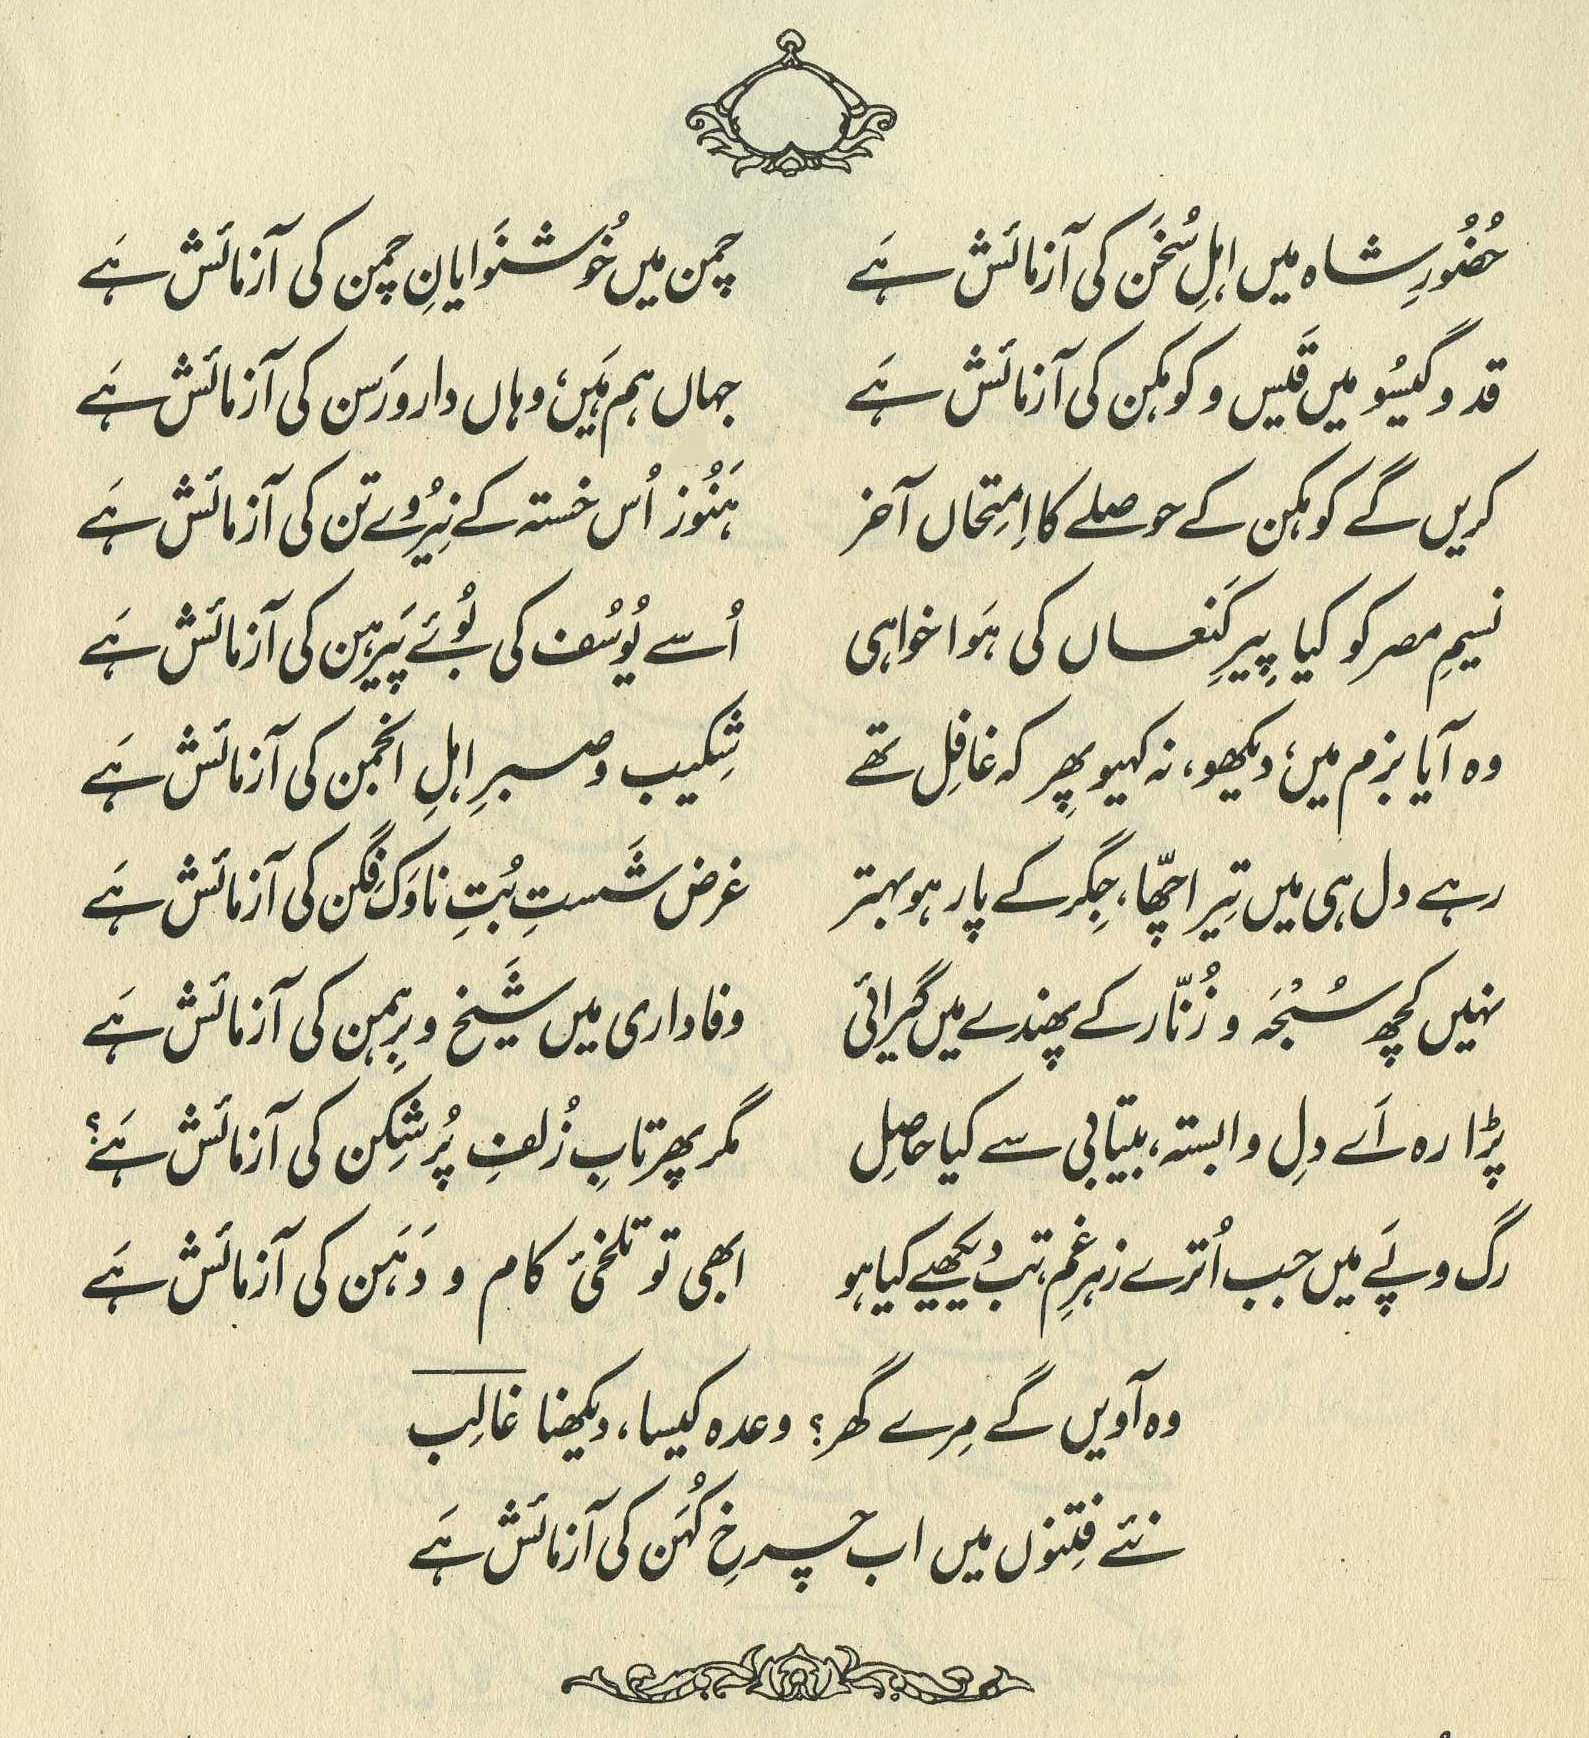 حُضُورِ شاہ میں اہلِ سُخَن کی آزمائش ہَے چمن میں خُوشنَوایانِ چمن کی آزمائش ہَے
قد و گیسُو میں قَیس و کوہکن کی آزمائش ہَے جہاں ہم ہَیں، وہاں دار و رَسن کی آزمائش ہَے
کریں گے کوہکن کے حوصلے کا اِمتِحاں آخر ہَنُوز اُس خستہ کے نِیرُوے تن کی آزمائش ہَے
نسیمِ مصر کو کیا پِیرِ کَنعاں کی ہَوا خواہی اُسے یُوسُف کی بُوئے پَیرہن کی آزمائش ہَے
وہ آیا بزم میں؛ دیکھو، نہ کہیو پِھر کہ غافِل تھے شِکیب و صبرِ اہلِ انجمن کی آزمائش ہَے
رہے دل ہی میں تِیر اچّھا، جِگر کے پار ہو بہتر غرض شَستِ بُتِ ناوَک فِگن کی آزمائش ہَے
نہیں کچھ سُبْحَہ و زُنّار کے پھندے میں گیرائی وفاداری میں شَیخ و برِہمن کی آزمائش ہَے
پڑا رہ اَے دلِ وابستہ، بیتابی سے کیا حاصِل مگر پھر تابِ زُلفِ پُر شِکن کی آزمائش ہَے؟
رگ و پَے میں جب اُترے زہرِ غم، تب دیکھیے کیا ہو ابھی تو تلخیٔ کام و دَہَن کی آزمائش ہَے
وہ آویں گے مِرے گھر؟ وعدہ کیسا، دیکھنا غالِب
نئے فِتنوں میں اب چرخِ کُہَن کی آزمائش ہَے